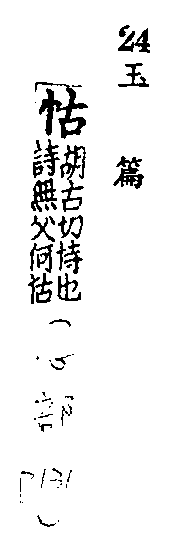 24 玉篇
怙
胡古切恃也
詩無父何怙
(心部